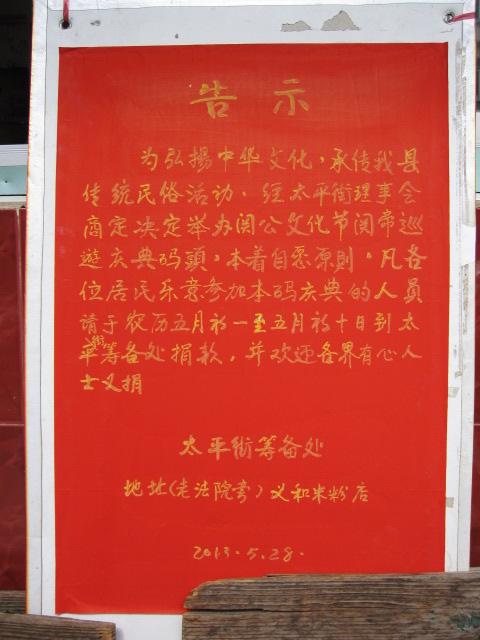 告示
为弘揚中华文化，承传我县
传统民俗活动．经太平街理事会
商定决定举办関公文化节関帝巡
遊庆典码頭，本着自愿原則，凡各
位居民乐意参加本码庆典的人員
請于农历五月初一至五月初十日到太
平街筹备处捐款，并欢迎各界有心人
士义捐
太平街筹备处
地址(老法院旁)义和米粉店
2013.5.28.